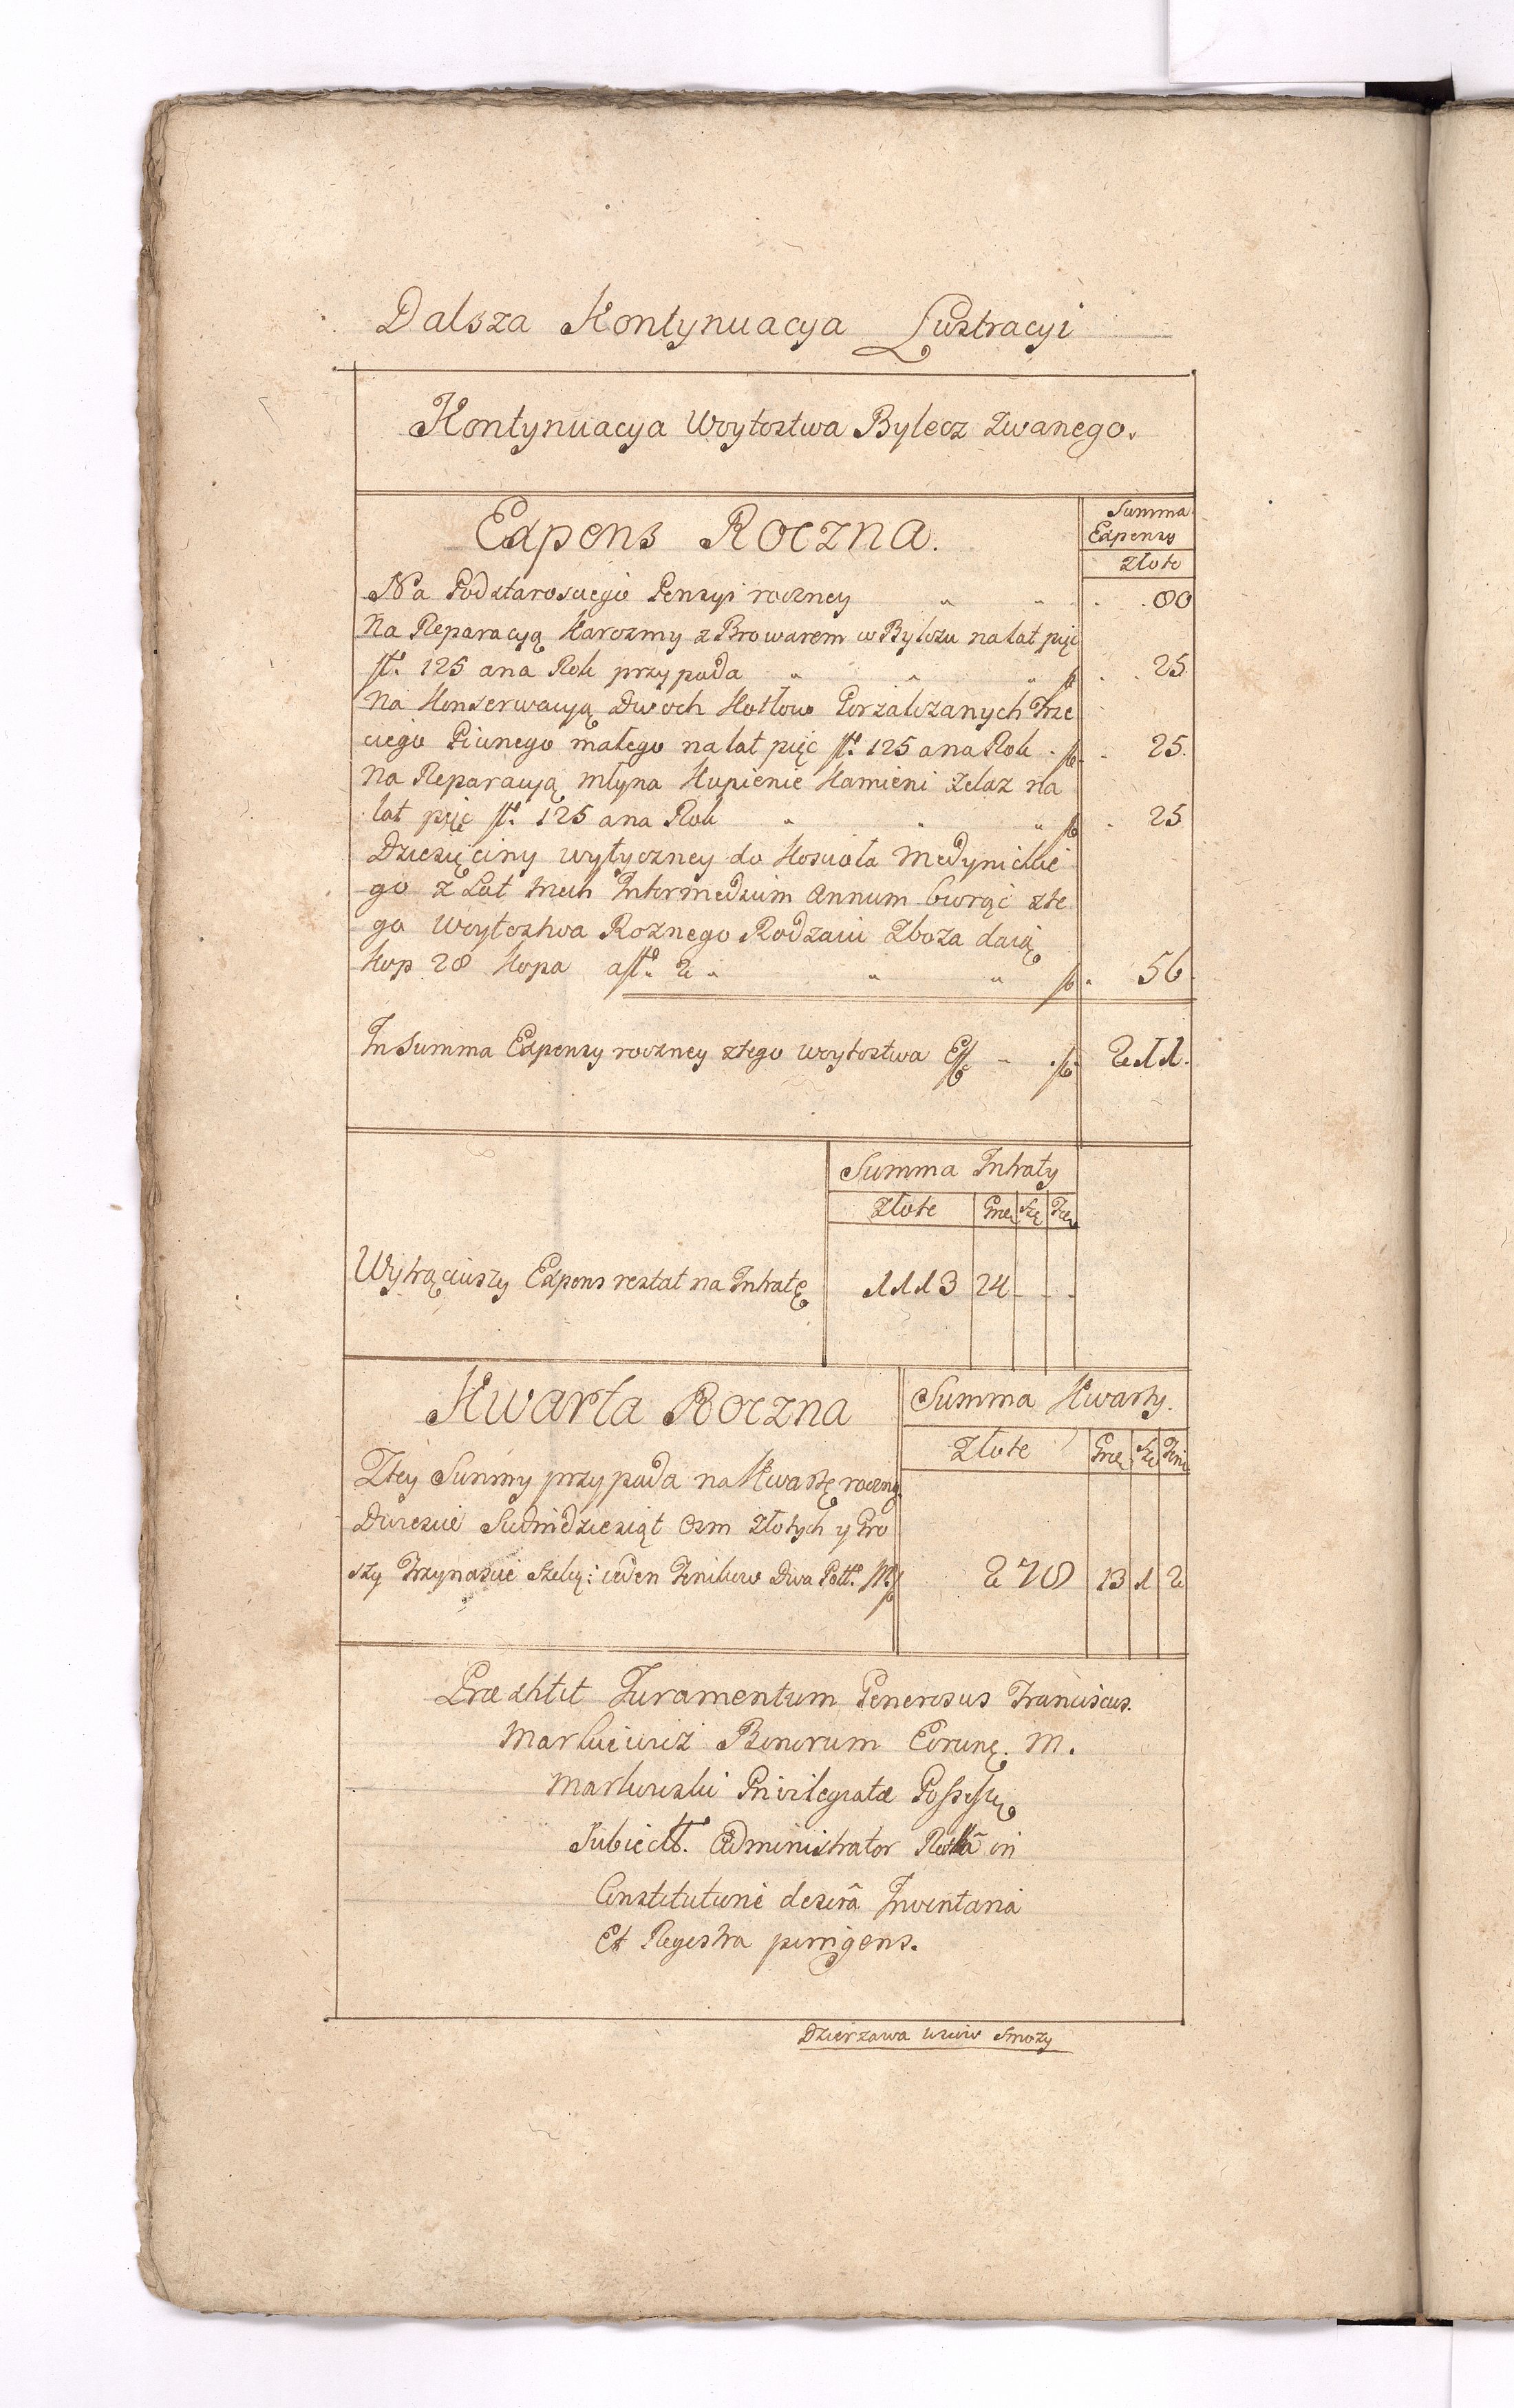 Dalsza Kontynuacya Lustracyi
Kontynuacya Woytostwa Bylecz Zwanego.
Expens Roczna.
Summa
Expensy
Złote
Na Podstarosciego Pensyi roczney " " . . 80
Na Reparacyą Karczmy z Browarem w Bylczu na lat pięć
fl. 125 ana Rok przypada " " " fl . . 25.
Na Konserwacyą Dwoch Kotłow Gorzalczanych Trze
ciego Piwnego małego na lat pięć fl. 125 ana Rok . fl . . 25.
Na Reparacyą młyna Kupienie Kamieni Zelaz na
lat pięć fl. 125 ana Rok " " " fl . 25
Dziesięciny wytyczney do Koscioła Medynickie
go z Lat trzech Intermedium Annum biorąc zte
go Woytostwa Roznego Rodzaiu Zboza daią
Kop 28 Kopa a fl. 2 " " " fl . 56.
In Summa Expensy roczney ztego Woytostwa Eff " . fl. 211.
Summa Intraty
Złote Gr Sze
Wytrąciwszy Expens restat na Intratę 1113 24 - - -
Kwarta Roczna
Summa Kwarty.
Złote Gr Sze Deni
Ztey Summy przypada na Kwartę roczną
Dwiescie Siedmdziesiąt Osm Złotych y Gro
szy Trzynascie Szelą: ieden Denikow Dwa 278 13 1 2
Præstitit Juramentum Generosus Franciscus.
Markiewicz Bonorum M.
Markowski Privilegiatæ
Administrator in
Constitutione Inventaria
Et Regestra porrigens.
Dzierzawa Smozy